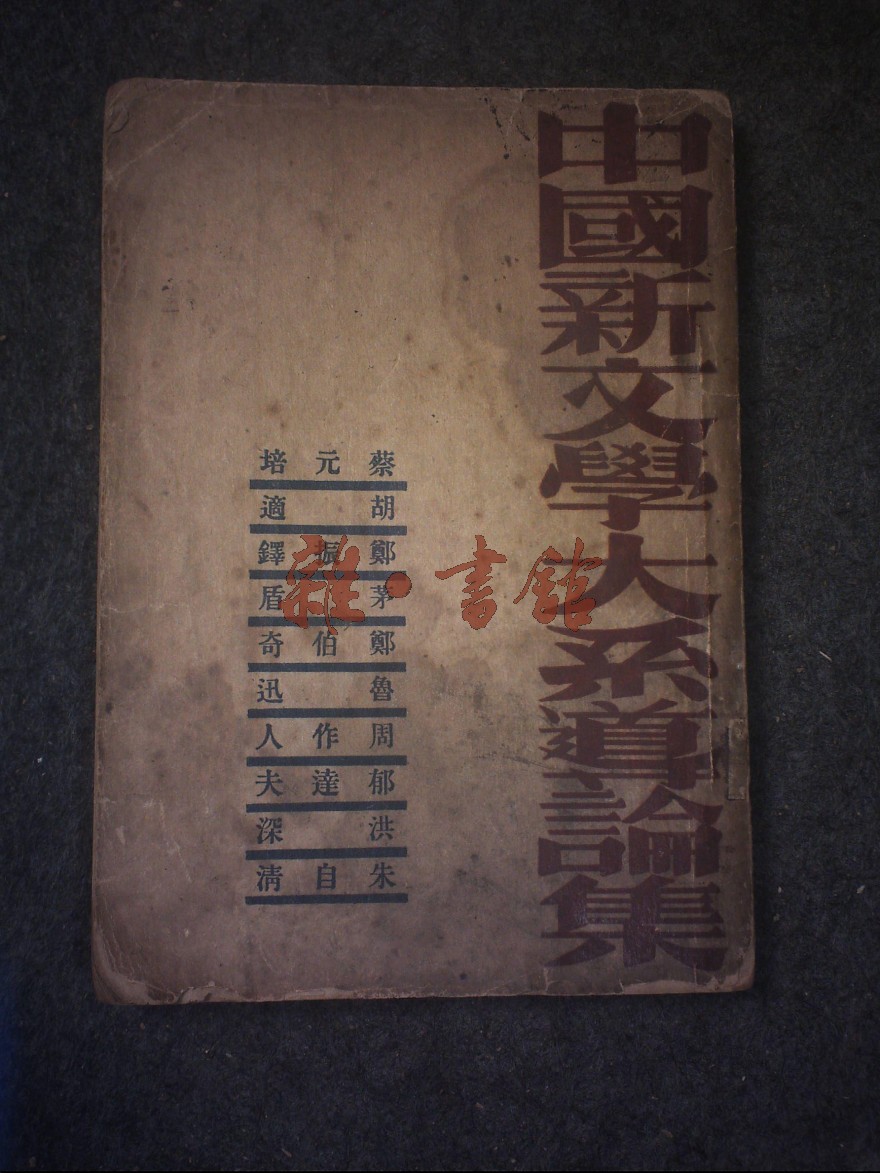 中國新文學大系導論集
蔡元培
胡適
鄭振鐸
茅盾
鄭伯奇
魯迅
周作人
郁達夫
洪深
朱自清
雜·書館